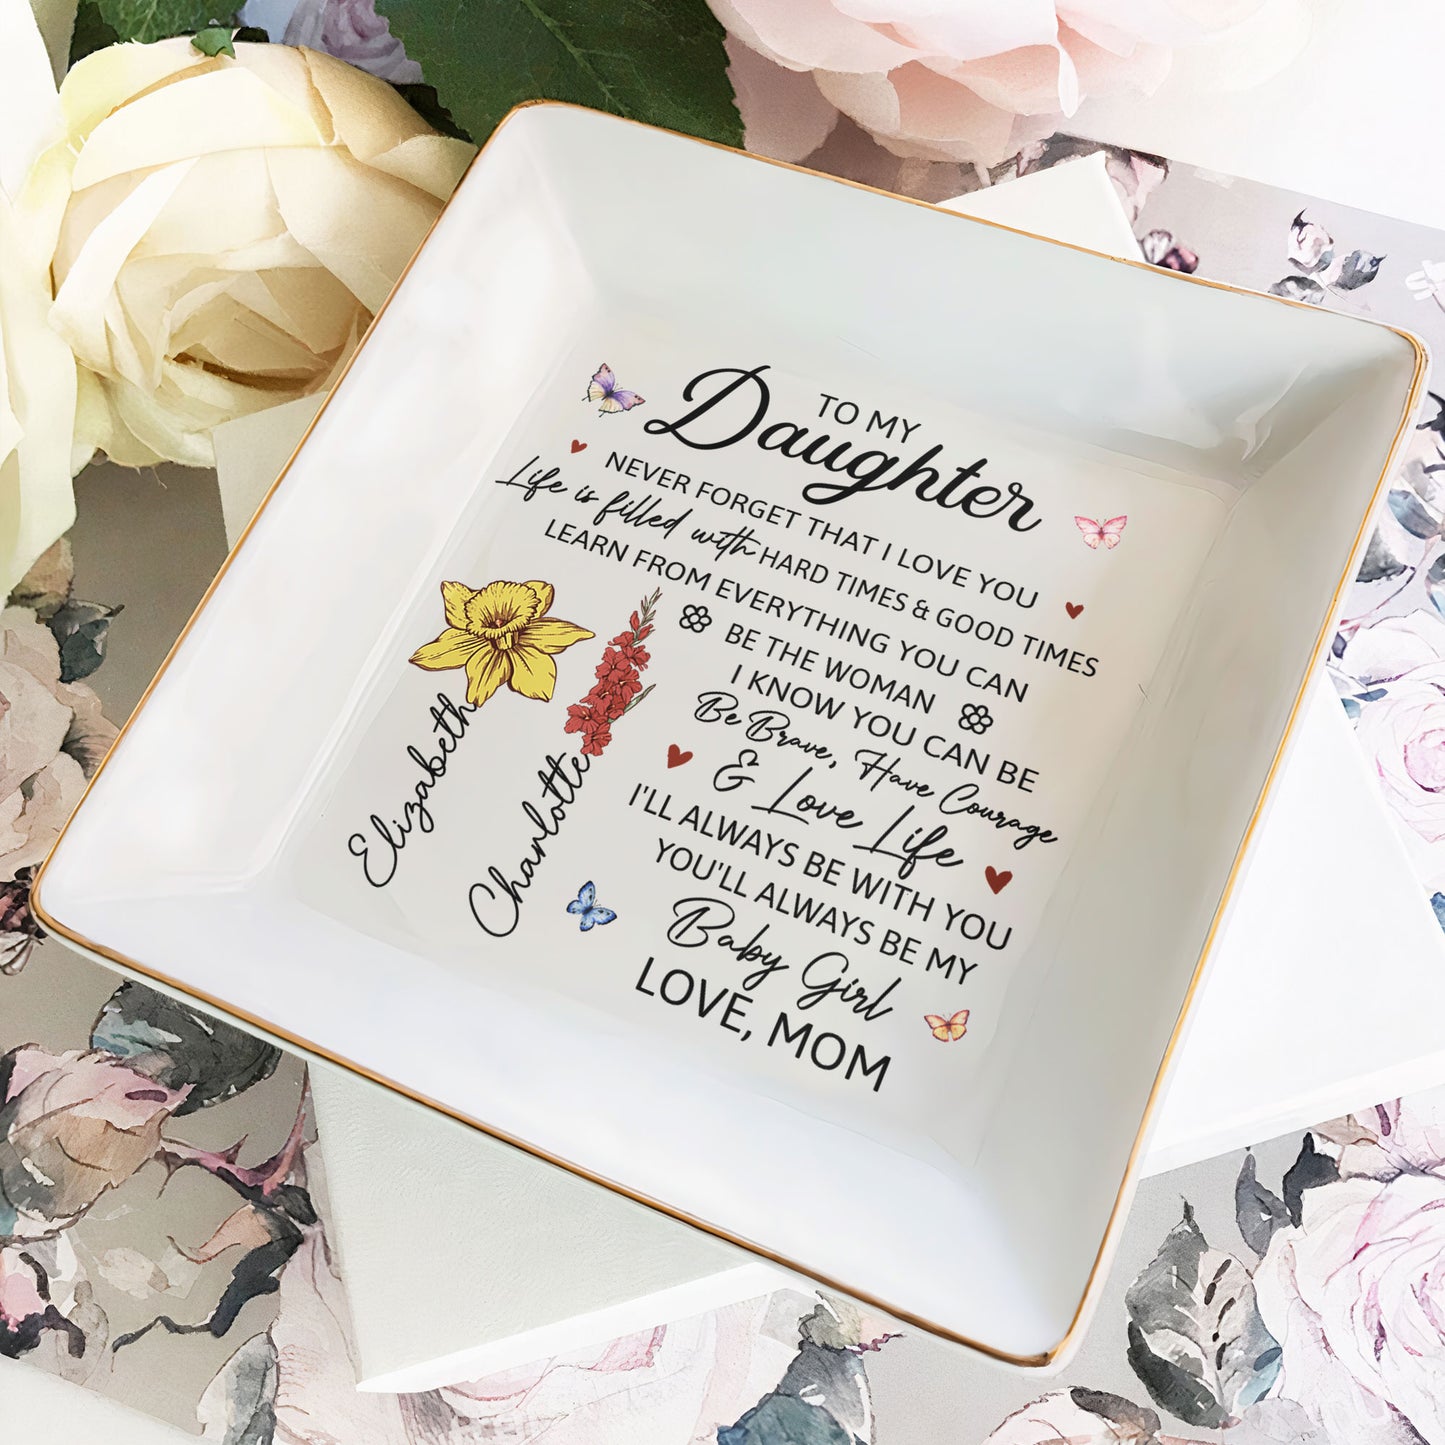 TO MY
Daughter
NEVER FORGET THAT I LOVE YOU
Life is filled with HARD TIMES & GOOD TIMES
LEARN FROM EVERYTHING YOU CAN
BE THE WOMAN
I KNOW YOU CAN BE
Be Brave, Have Courage
& Love Life
I'LL ALWAYS BE WITH YOU
YOU'LL ALWAYS BE MY
Baby Girl
LOVE, MOM
Elizabeth
Charlotte